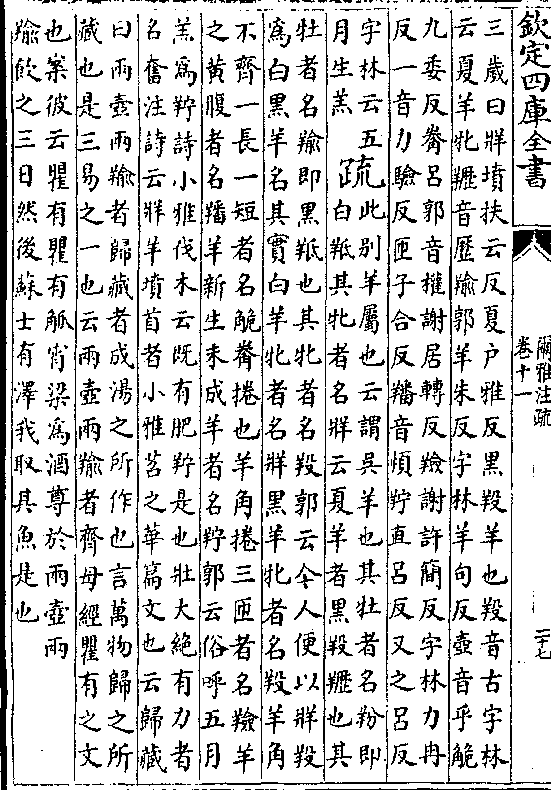 欽定四庫全書
爾雅注疏
卷十一
二十七
三歲曰牂墳扶云反夏户雅反黑羖羊也羖音古字林
云夏羊牝䍽音歷羭郭羊朱反字林羊句反壺音乎觤
九委反觠吕郭音權謝居轉反羷謝許簡反字林力冉
反一音力驗反匝子合反羳音煩羜直呂反又之呂反
字林云五
月生羔
疏
此別羊屬也云謂吳羊也其牡者名羒即
白羝其牝者名牂云夏羊者黑羖䍽也其
牡者名羭即黑羝也其牝者名羖郭云今人便以牂羖
為白黑羊名其實白羊牝者名牂黑羊牝者名羖羊角
不齊一長一短者名觤觠捲也羊角捲三匝者名羷羊
之黃腹者名羳羊新生未成羊者名羜郭云俗呼五月
羔為羜詩小雅伐木云既有肥羜是也壯大絶有力者
名奮注詩云牂羊墳首者小雅苕之華篇文也云歸藏
曰兩壺兩羭者歸藏者成湯之所作也言萬物歸之所
藏也是三易之一也云兩壺兩羭者齊母經瞿有之文
也案彼云瞿有瞿有觚宵梁為酒尊於兩壺兩
羭飲之三日然後蘇士有澤我取其魚是也